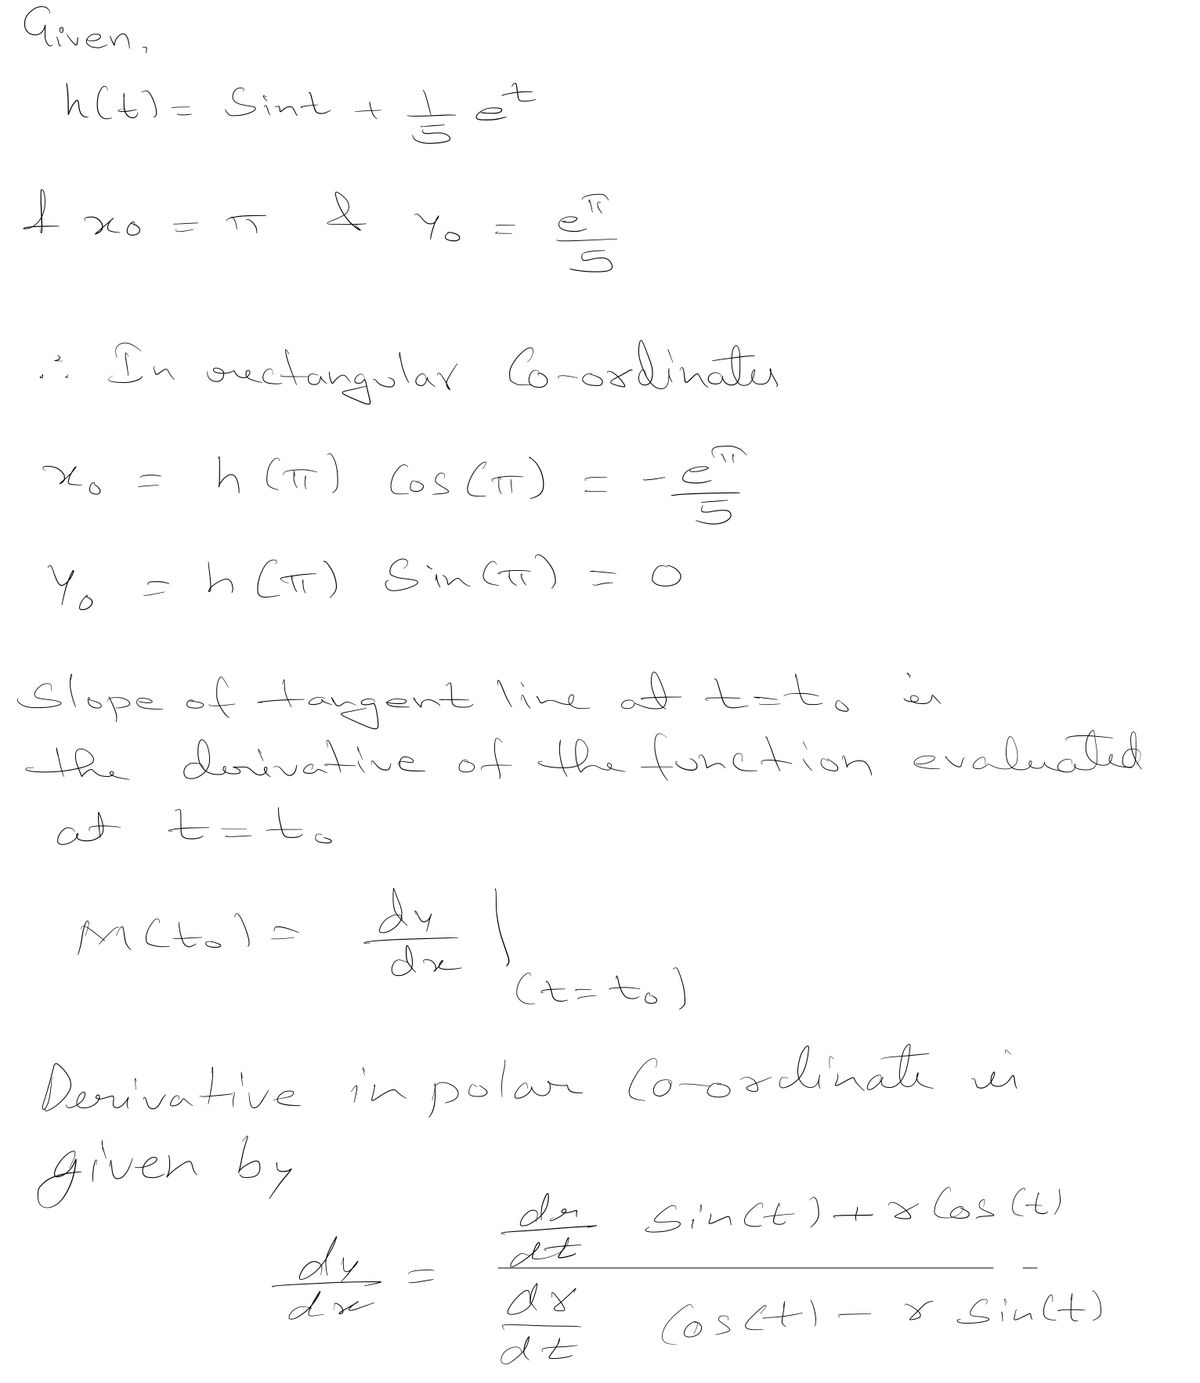 Given,
h(t) = Sint + 1/5 e^t
& x₀ = π & y₀ = e^π/5
∴ In rectangular Co-ordinates
x₀ = h(π) Cos(π) = -e^π/5
y₀ = h(π) Sin(π) = 0
Slope of tangent line at t=t₀ is
the derivative of the function evaluated
at t=t₀
M(t₀) = dy/dx |(t=t₀)
Derivative in polar Co-ordinate is
given by
dy/dx = (dr/dt Sin(t) + r Cos(t)) / (dr/dt Cos(t) - r Sin(t))